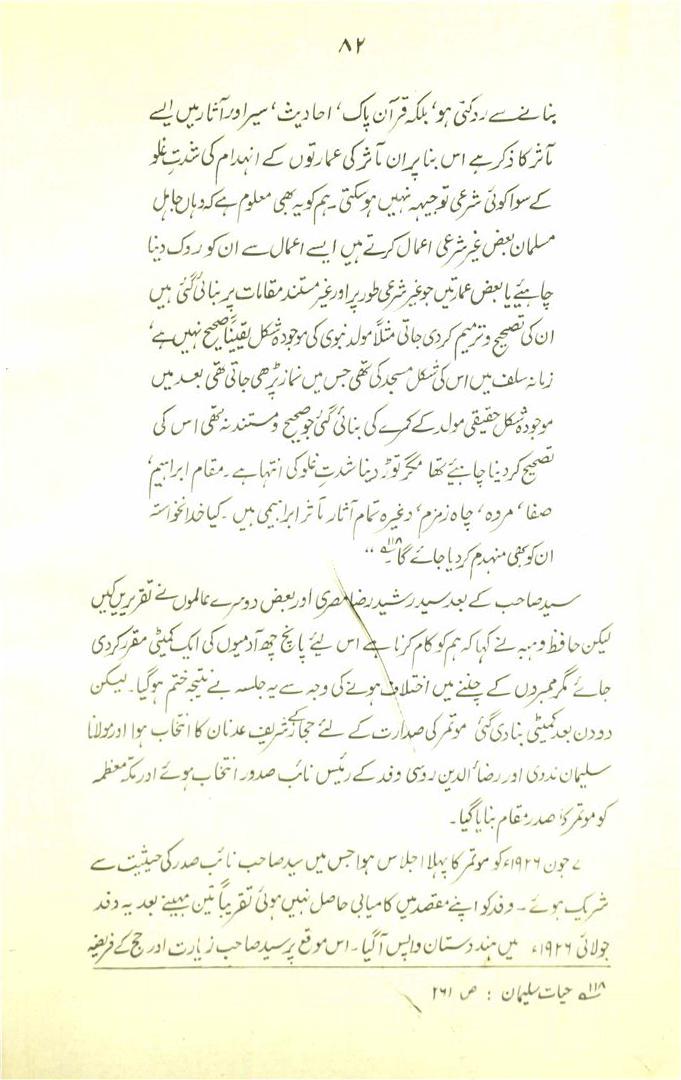 ۸۲
بنانے سے رد کئی ہو، بلکہ قرآن پاک، احادیث، سیر اور آثار میں ایسے
مآثر کا ذکر ہے اس بنا پر ان مآثر کی عمارتوں کے انہدام کی شدتِ غلو
کے سوا کوئی شرعی توجیہہ نہیں ہو سکتی ۔ ہم کو یہ بھی معلوم ہے کہ وہاں جاہل
مسلمان بعض غیر شرعی اعمال کرتے ہیں ایسے اعمال سے ان کو روک دینا
چاہئیے یا بعض عمارتیں جو غیر شرعی طور پر اور غیر مستند مقامات پر بنائی گئی ہیں
ان کی تصحیح و ترمیم کر دی جاتی مثلاً مولد نبوی کی موجودہ شکل یقیناً صحیح نہیں ہے،
زمانہ سلف میں اس کی شکل مسجد کی تھی جس میں نماز پڑھی جاتی تھی بعد میں
موجودہ شکل حقیقی مولد کے کمرے کی بنائی گئی جو صحیح و مستند نہ تھی اس کی
تصحیح کر دینا چاہئیے تھا مگر توڑ دینا شدتِ غلو کی انتہا ہے ۔ مقام ابراہیم،
صفا، مروہ، چاہ زمزم، وغیرہ تمام آثار مآثر ابراہیمی ہیں ۔ کیا خدانخواستہ
ان کو بھی منہدم کر دیا جائے گا۔۱۱۸؎ "
سید صاحب کے بعد سید رشید رضا مصری اور بعض دوسرے عالموں نے تقریریں کیں
لیکن حافظ وہبہ نے کہا کہ ہم کو کام کرنا ہے اس لیئے پانچ چھ آدمیوں کی ایک کمیٹی مقرر کر دی
جائے مگر ممبروں کے چننے میں اختلاف ہونے کی وجہ سے یہ جلسہ بے نتیجہ ختم ہو گیا ۔ لیکن
دو دن بعد کمیٹی بنا دی گئی موتمر کی صدارت کے لئے حجاز کے شریف عدنان کا انتخاب ہوا اور مولانا
سلیمان ندوی اور رضاء الدین روسی وفد کے رئیس نائب صدور انتخاب ہوئے اور مکہ معظمہ
کو موتمر کا صدر مقام بنایا گیا ۔
۷ جون ۱۹۲۶ء کو موتمر کا پہلا اجلاس ہوا جس میں سید صاحب نائب صدر کی حیثیت سے
شریک ہوئے ۔ وفد کو اپنے مقصد میں کامیابی حاصل نہیں ہوئی تقریباً تین مہینے بعد یہ وفد
جولائی ۱۹۲۶ء میں ہندوستان واپس آ گیا ۔ اس موقع پر سید صاحب زیارت اور حج کے فریضہ
۱۱۸؎ حیات سلیمان : ص ۲۶۱